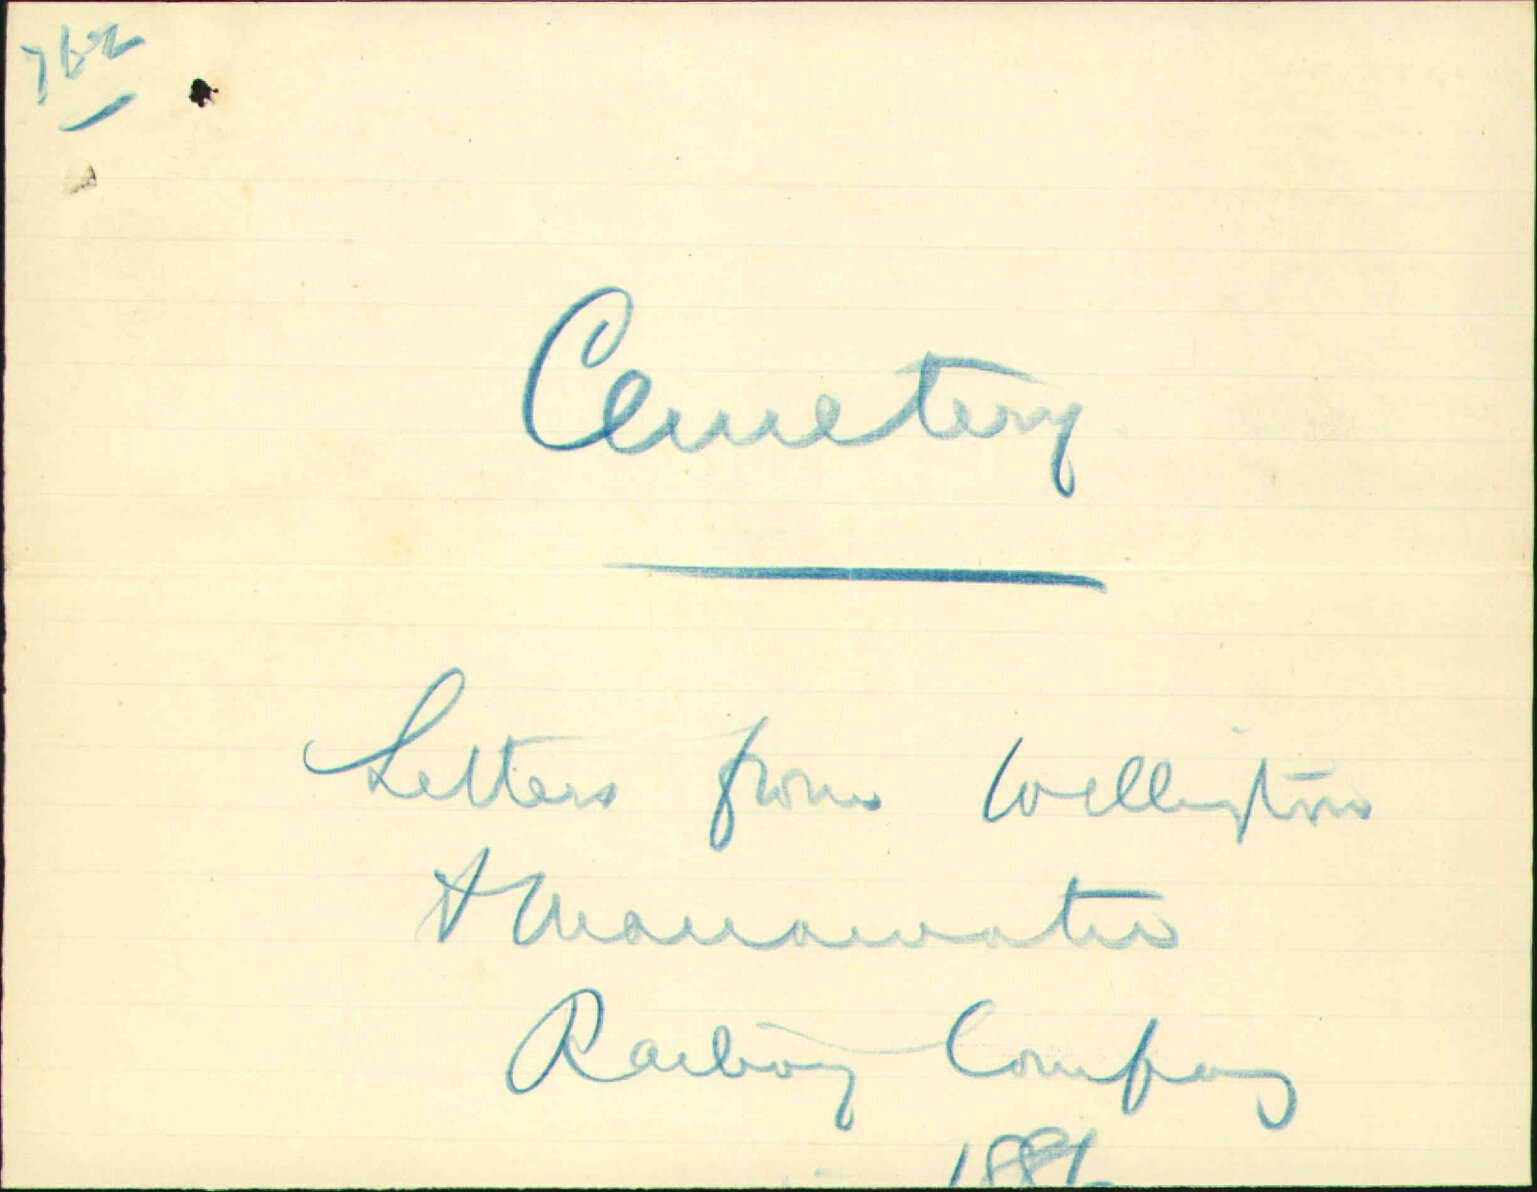 762
Cemetery
Letters from Wellington
& Manawatu
Railway Company